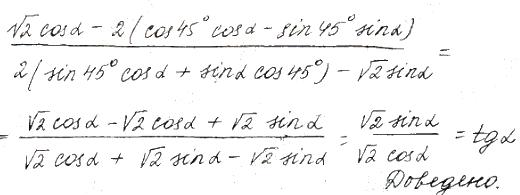 (√2 cosα − 2(cos45° cosα − sin45° sinα)) / (2(sin45° cosα + sinα cos45°) − √2 sinα) =
= (√2 cosα − √2 cosα + √2 sinα) / (√2 cosα + √2 sinα − √2 sinα) = (√2 sinα) / (√2 cosα) = tgα
Доведено.